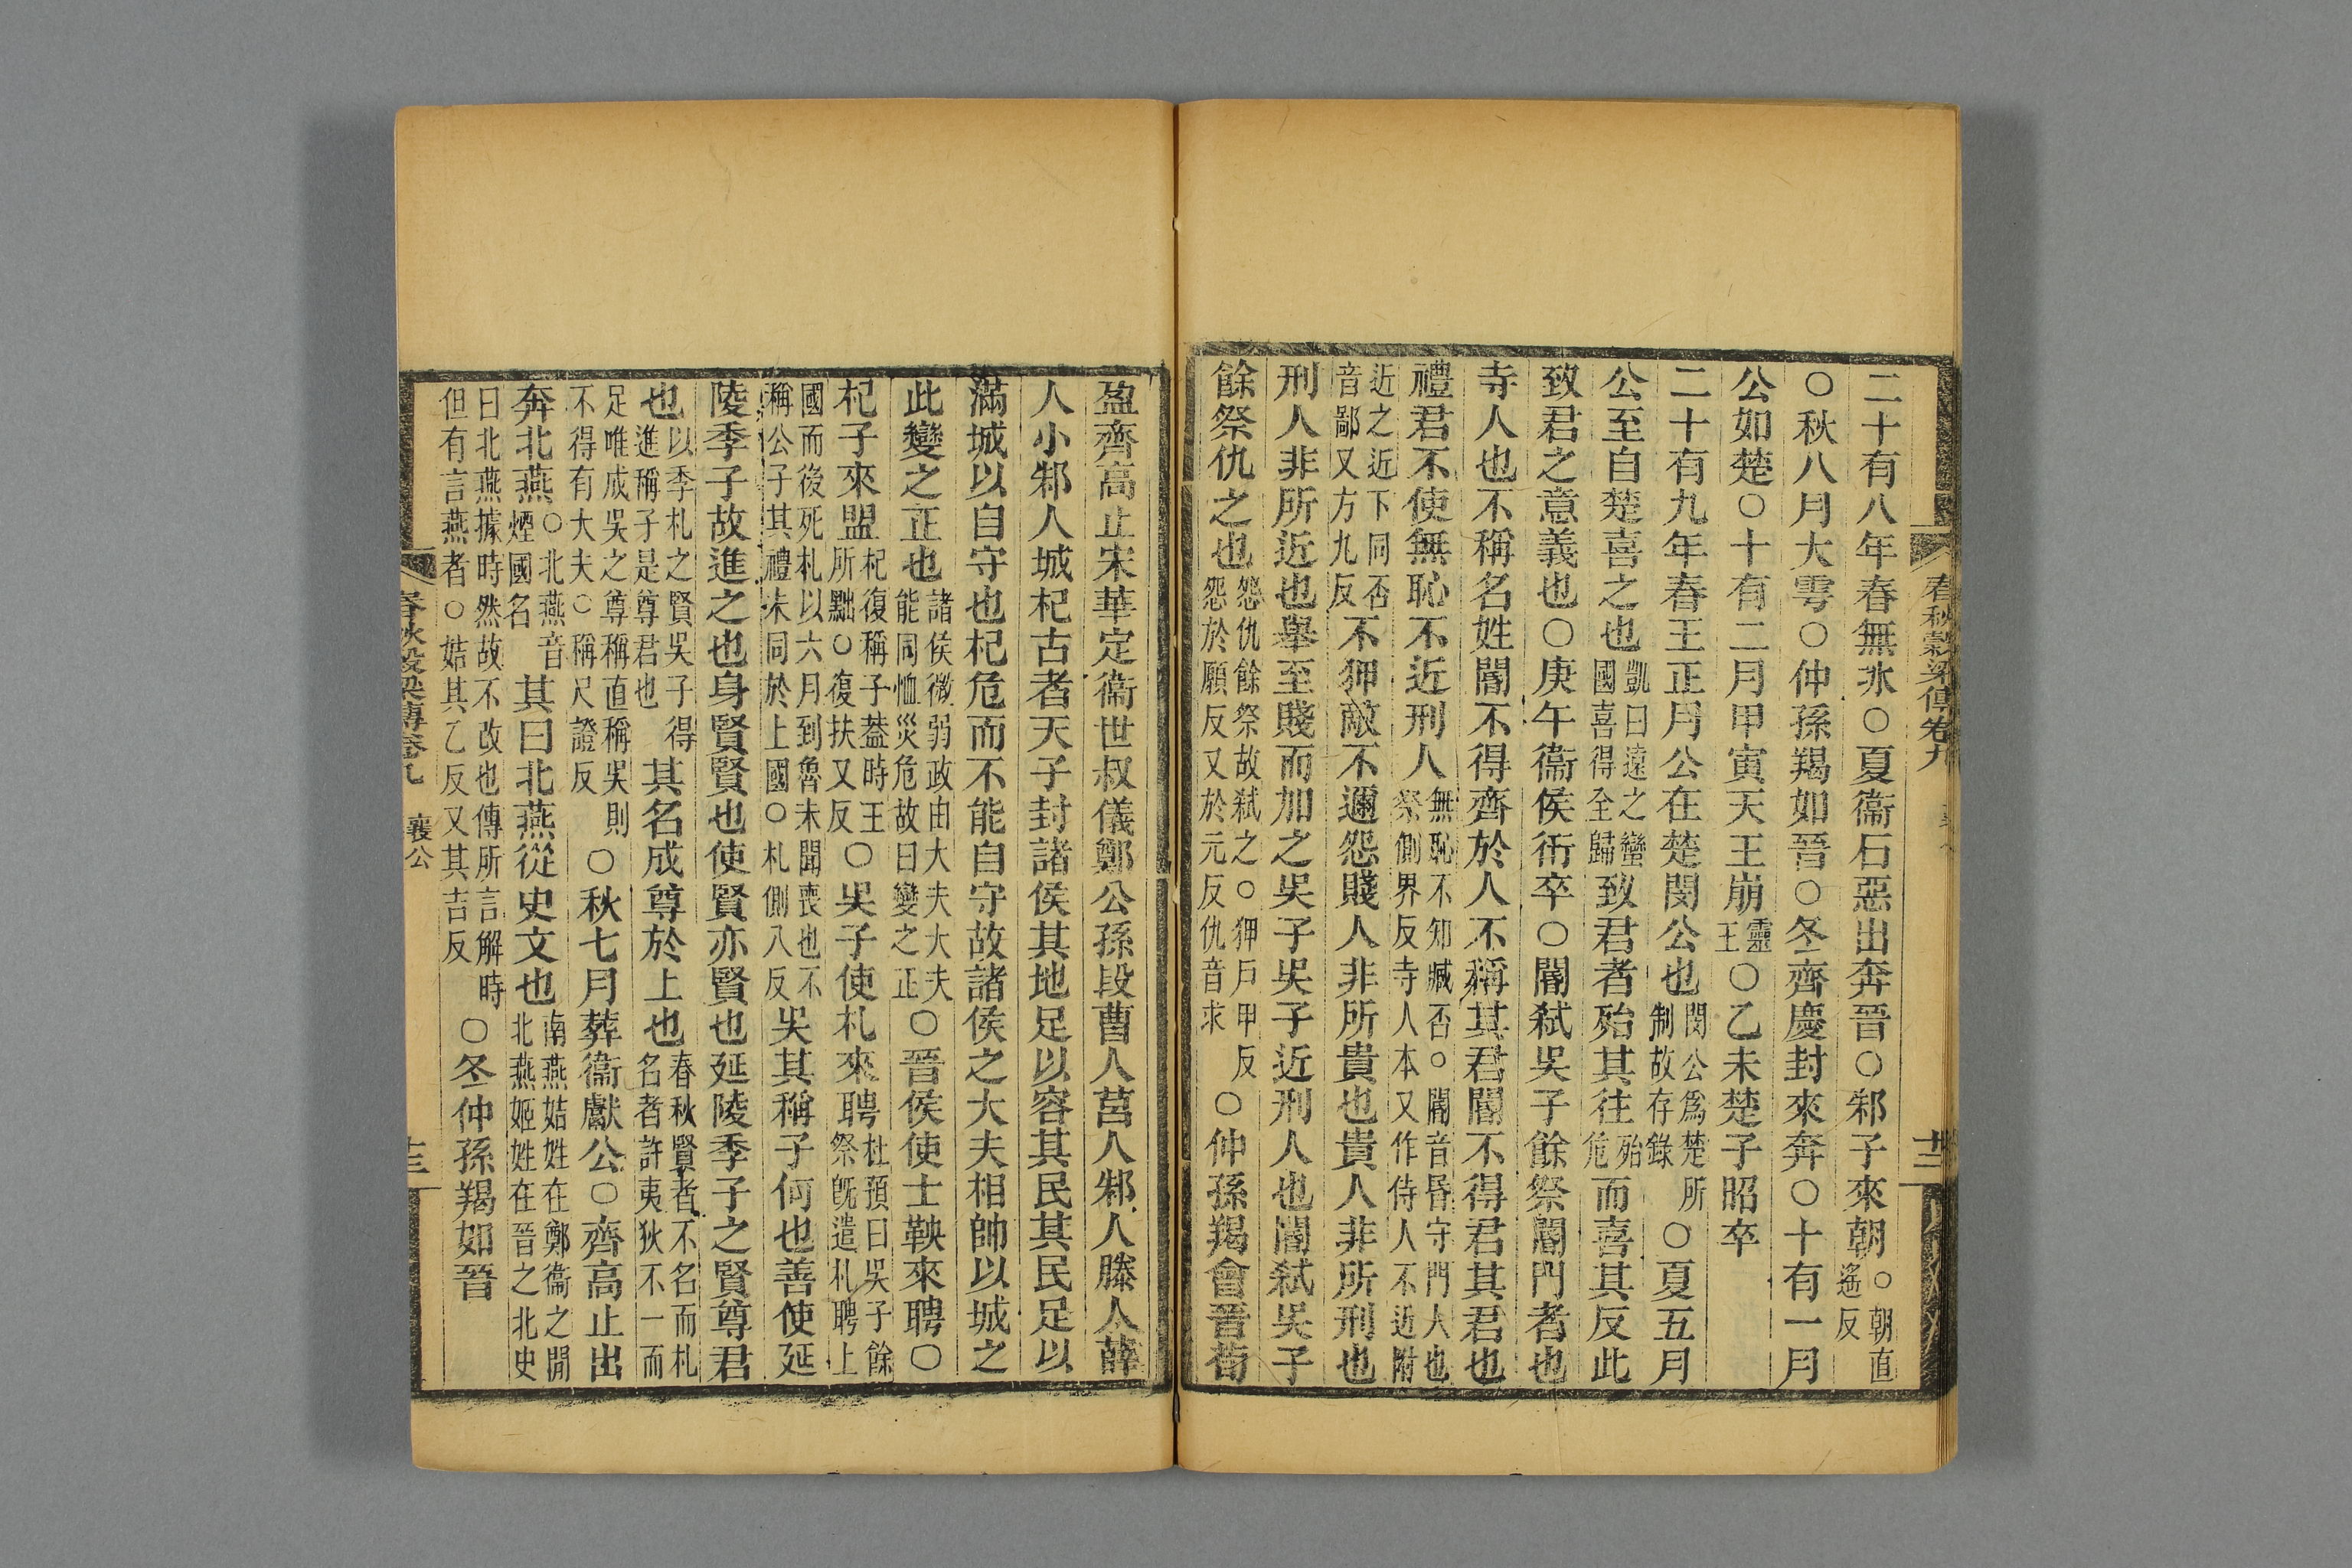 春秋穀梁傳卷九
二十有八年春無氷○夏衞石惡出奔晉○邾子來朝○朝直遙反
○秋八月大雩○仲孫羯如晉○冬齊慶封來奔○十有一月
公如楚○十有二月甲寅天王崩靈王○乙未楚子昭卒
二十有九年春王正月公在楚閔公也閔公爲楚所制故存錄○夏五月
公至自楚喜之也凱曰遠之蠻國喜得全歸致君者殆其往殆危而喜其反此
致君之意義也○庚午衞侯衎卒○閽弑吳子餘祭閽門者也
寺人也不稱名姓閽不得齊於人不稱其君閽不得君其君也
禮君不使無恥不近刑人無恥不知臧否○閽音昏守門人也祭側界反寺人本又作侍人不近附
近之近下同否音鄙又方九反不狎敵不邇怨賤人非所貴也貴人非所刑也
刑人非所近也舉至賤而加之吳子吳子近刑人也閽弑吳子
餘祭仇之也怨仇餘祭故弑之○狎戶甲反怨於願反又於元反仇音求○仲孫羯會晉荀
盈齊高止宋華定衞世叔儀鄭公孫段曹人莒人邾人滕人薛
人小邾人城杞古者天子封諸侯其地足以容其民其民足以
滿城以自守也杞危而不能自守故諸侯之大夫相帥以城之
此變之正也諸侯微弱政由大夫大夫能同恤災危故曰變之正○晉侯使士鞅來聘○
杞子來盟杞復稱子葢時王所黜○復扶又反○吳子使札來聘杜預曰吳子餘祭旣遣札聘上
國而後死札以六月到魯未聞喪也不稱公子其禮未同於上國○札側八反吳其稱子何也善使延
陵季子故進之也身賢賢也使賢亦賢也延陵季子之賢尊君
也以季札之賢吳子得進稱子是尊君也其名成尊於上也春秋賢者不名而札名者許夷狄不一而
足唯成吳之尊稱直稱吳則不得有大夫○稱尺證反○秋七月葬衞獻公○齊高止出
奔北燕○北燕音煙國名其曰北燕從史文也南燕姞姓在鄭衞之閒北燕姬姓在晉之北史
曰北燕據時然故不改也傳所言解時但有言燕者○姞其乙反又其吉反○冬仲孫羯如晉
襄公